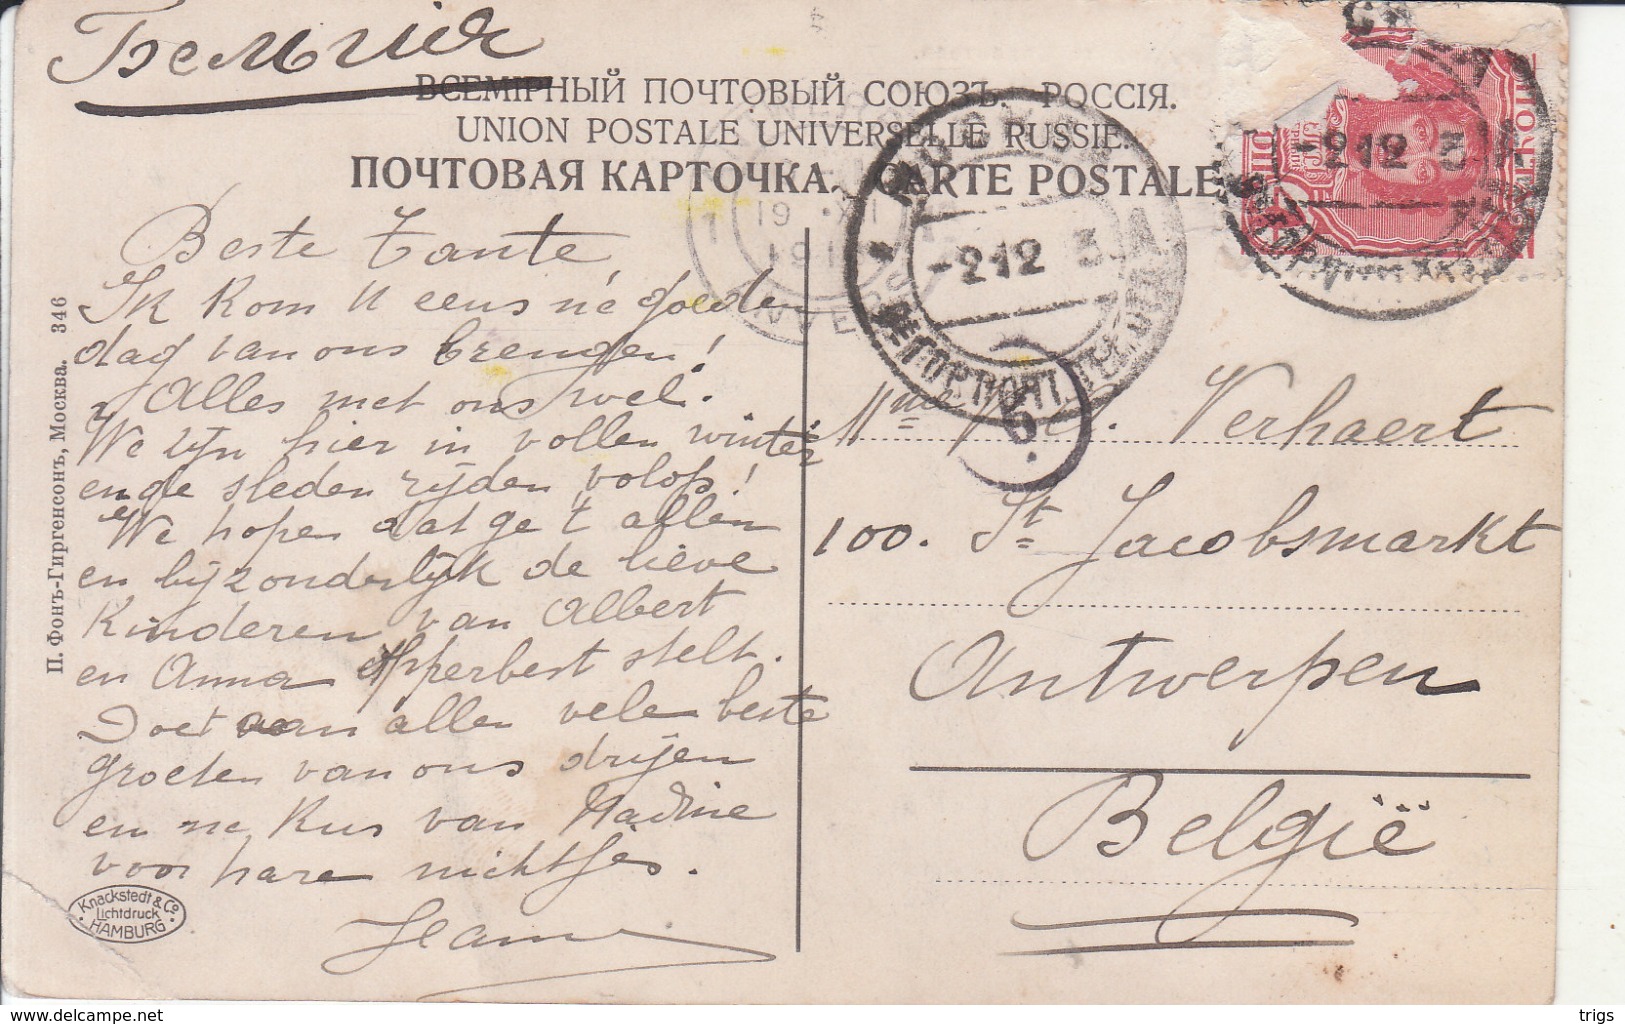 Бельгія
ВСЕМІРНЫЙ ПОЧТОВЫЙ СОЮЗЪ. РОССІЯ.
UNION POSTALE UNIVERSELLE RUSSIE.
ПОЧТОВАЯ КАРТОЧКА. CARTE POSTALE
Beste Tante,
Ik kom U eens ne goeden
dag van ons brengen!
Alles met ons wel.
We zijn hier in vollen winter
en de sleden rijden volop!
We hopen dat ge 't allen
en bijzonderlijk de lieve
Kinderen van Albert
en Anna opperbest stelt.
Doet van allen vele beste
groeten van ons drijen
en ne kus van Nadine
voor hare nichtjes.
Jeanne
Mme Verhaert
100. St Jacobsmarkt
Antwerpen
België
-2 12
-2 12
П. Фонъ-Гиргенсонъ, Москва. 346
Knackstedt & Co
Lichtdruck
HAMBURG
delcampe.net
trigs